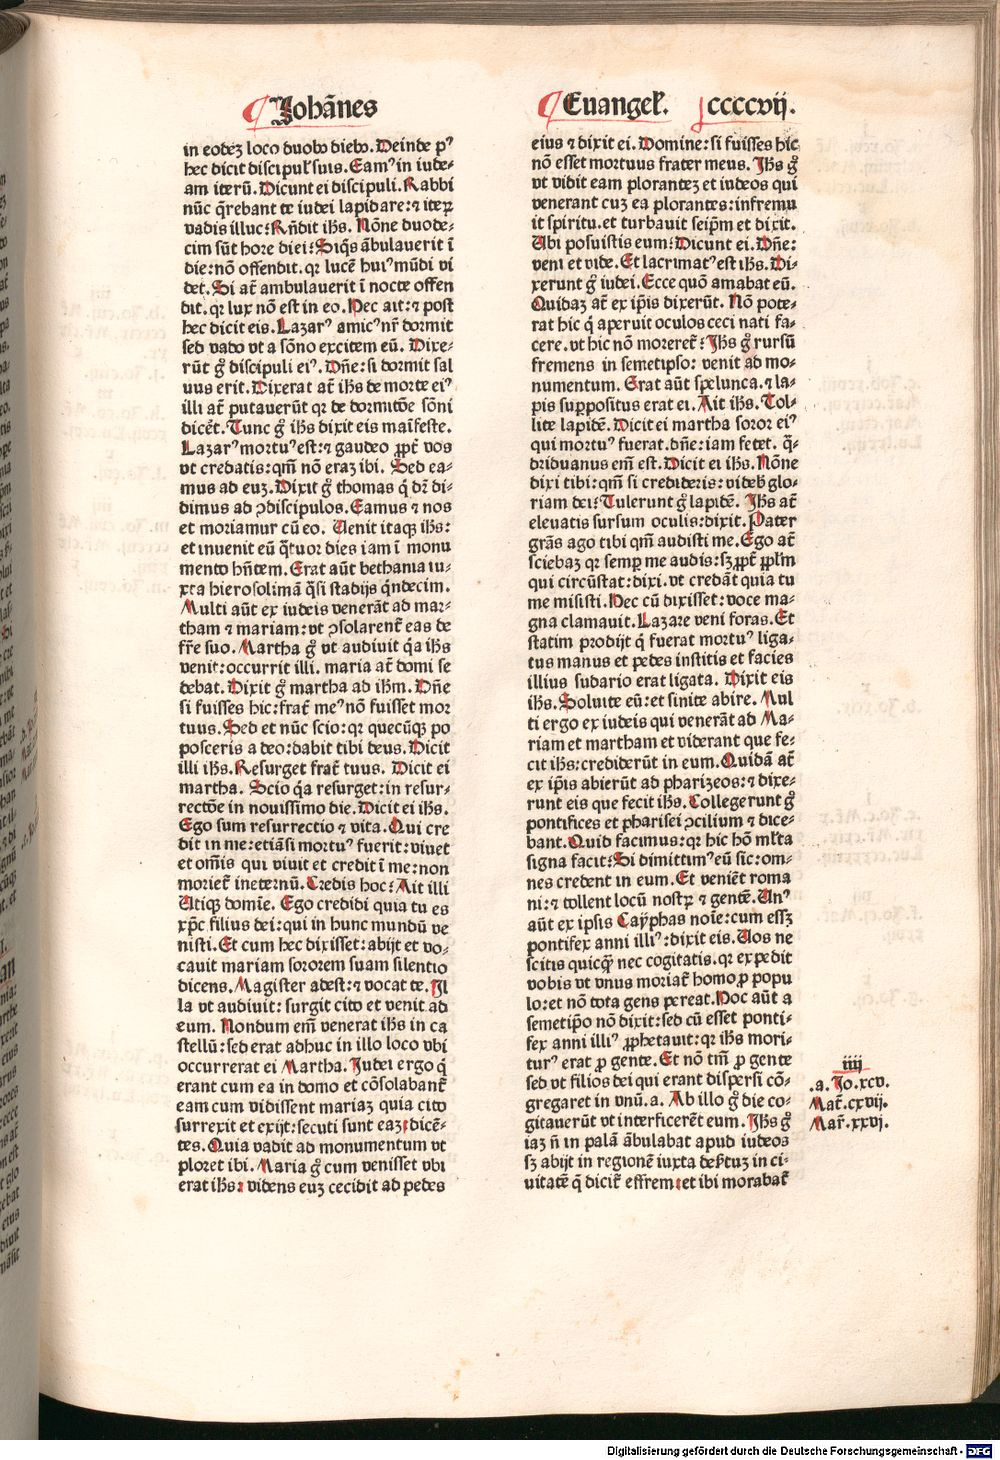 Johānes
Euangeł. ccccvij.
in eodeȝ loco duobꝰ diebꝰ. Deinde pꝰ
hec dicit discipuł suis. Eamꝰ in iude⸗
am iterū. Dicunt ei discipuli. Rabbi
nūc q̄rebant te iudei lapidare: ⁊ iteꝝ
vadis illuc? Rn̄dit ihs̄. Nōne duode⸗
cim sūt hore diei? Siq̇s ābulauerit ī
die: nō offendit. qꝛ lucē huiꝰ mūdi vi
det. Si at̄ ambulauerit ī nocte offen
dit. qꝛ lux nō est in eo. Hec ait: ⁊ post
hec dicit eis. Lazarꝰ amicꝰ nr̄ dormit
sed vado vt a sōno excitem eū. Dixe⸗
rūt g̊ discipuli eiꝰ. Dn̄e: si dormit sal
uus erit. Dixerat at̄ ihs̄ de morte eiꝰ
illi at̄ putauerūt qꝛ de dormitōe sōni
dicēt. Tunc g̊ ihs̄ dixit eis maīfeste.
Lazarꝰ mortuꝰ est: ⁊ gaudeo ꝓpt̄ vos
vt credatis: qm̄ nō eraȝ ibi. Sed ea⸗
mus ad euȝ. Dixit g̊ thomas q̇ dr̄ di⸗
dimus ad ꝯdiscipulos. Eamus ⁊ nos
et moriamur cū eo. Uenit itaqꝫ ihs̄:
et inuenit eū q̄tuor dies iam ī monu
mento hn̄tem. Erat aūt bethania iu⸗
xta hierosolimā q̄si stadijs q̇ndecim.
Multi aūt ex iudeis venerāt ad mar⸗
tham ⁊ mariam: vt ꝯsolarent̄ eas de
fr̄e suo. Martha g̊ vt audiuit q̇a ihs̄
venit: occurrit illi. maria at̄ domi se
debat. Dixit g̊ martha ad ihm̄. Dn̄e
si fuisses hic: frat̄ meꝰ nō fuisset mor
tuus. Sed et nūc scio: qꝛ quecūqꝫ po
posceris a deo: dabit tibi deus. Dicit
illi ihs̄. Resurget frat̄ tuus. Dicit ei
martha. Scio q̇a resurget: in resur⸗
rectōe in nouissimo die. Dicit ei ihs̄.
Ego sum resurrectio ⁊ vita. Qui cre
dit in me: etiāsi mortuꝰ fuerit: viuet
et om̄is qui viuit et credit ī me: non
moriet̄ ineternū. Credis hoc? Ait illi
Utiqꝫ domīe. Ego credidi quia tu es
xp̄c filius dei: qui in hunc mundū ve
nisti. Et cum hec dixisset: abijt et vo⸗
cauit mariam sororem suam silentio
dicens. Magister adest: ⁊ vocat te. Il
la vt audiuit: surgit cito et venit ad
eum. Nondum em̄ venerat ihs̄ in ca
stellū: sed erat adhuc in illo loco vbi
occurrerat ei Martha. Judei ergo q̇
erant cum ea in domo et cōsolabant̄
eam cum vidissent mariaȝ quia cito
surrexit et exijt: secuti sunt eaȝ dicē⸗
tes. Quia vadit ad monumentum vt
ploret ibi. Maria g̊ cum venisset vbi
erat ihs̄: videns euȝ cecidit ad pedes
eius ⁊ dixit ei. Domine: si fuisses hic
nō esset mortuus frater meus. Jhs̄ g̊
vt vidit eam ploranteȝ et iudeos qui
venerant cuȝ ea plorantes: infremu
it spiritu. et turbauit seip̄m et dixit.
Ubi posuistis eum? Dicunt ei. Dn̄e:
veni et vide. Et lacrimatꝰ est ihs̄. Di⸗
xerunt g̊ iudei. Ecce quō amabat eū.
Quidaȝ at̄ ex ip̄is dixerūt. Nō pote⸗
rat hic q̇ aperuit oculos ceci nati fa⸗
cere. vt hic nō moreret̄? Jhs̄ g̊ rursū
fremens in semetipso: venit ad mo⸗
numentum. Erat aūt spelunca. ⁊ la⸗
pis suppositus erat ei. Ait ihs̄. Tol⸗
lite lapidē. Dicit ei martha soror eiꝰ
qui mortuꝰ fuerat. dn̄e: iam fetet. q̄⸗
driduanus em̄ est. Dicit ei ihs̄. Nōne
dixi tibi: qm̄ si credideris: videbꝭ glo⸗
riam dei? Tulerunt g̊ lapidē. Jhs̄ at̄
eleuatis sursum oculis: dixit. Pater
grās ago tibi qm̄ audisti me. Ego at̄
sciebaȝ qꝛ semper me audis: sȝ ꝓpt̄ ꝓpłm
qui circūstat: dixi. vt credāt quia tu
me misisti. Hec cū dixisset: voce ma⸗
gna clamauit. Lazare veni foras. Et
statim prodijt q̇ fuerat mortuꝰ liga⸗
tus manus et pedes institis et facies
illius sudario erat ligata. Dixit eis
ihs̄. Soluite eū: et sinite abire. Mul
ti ergo ex iudeis qui venerāt ad Ma⸗
riam et martham et viderant que fe⸗
cit ihs̄: crediderūt in eum. Quidā at̄
ex ip̄is abierūt ad pharizeos: ⁊ dixe⸗
runt eis que fecit ihs̄. Collegerunt g̊
pontifices et pharisei ꝯcilium ⁊ dice⸗
bant. Quid facimus: qꝛ hic hō młta
signa facit? Si dimittimꝰ eū sic: om⸗
nes credent in eum. Et veniēt roma
ni: ⁊ tollent locū nostꝝ ⁊ gentē. Unꝰ
aūt ex ipsis Cayphas noīe: cum essȝ
pontifex anni illiꝰ: dixit eis. Uos ne
scitis quicqꝫ nec cogitatis. qꝛ expedit
vobis vt vnus moriat̄ homo ꝓ popu
lo: et nō tota gens pereat. Hoc aūt a
semetip̄o nō dixit: sed cū esset ponti⸗
fex anni illiꝰ ꝓphetauit: qꝛ ihs̄ mori⸗
turꝰ erat ꝓ gente. Et nō tm̄ ꝓ gente
sed vt filios dei qui erant dispersi cō⸗
gregaret in vnū. a. Ab illo g̊ die co⸗
gitauerūt vt interficerēt eum. Jhs̄ g̊
iaȝ n̄ in palā ābulabat apud iudeos
sȝ abijt in regionē iuxta desertuȝ in ci⸗
uitatē q̄ dicit̄ effrem: et ibi morabat̄
iiij
.a. Jo. xcv.
Mat̄. cxvij.
Mar̄. xxvj.
Digitalisierung gefördert durch die Deutsche Forschungsgemeinschaft - DFG